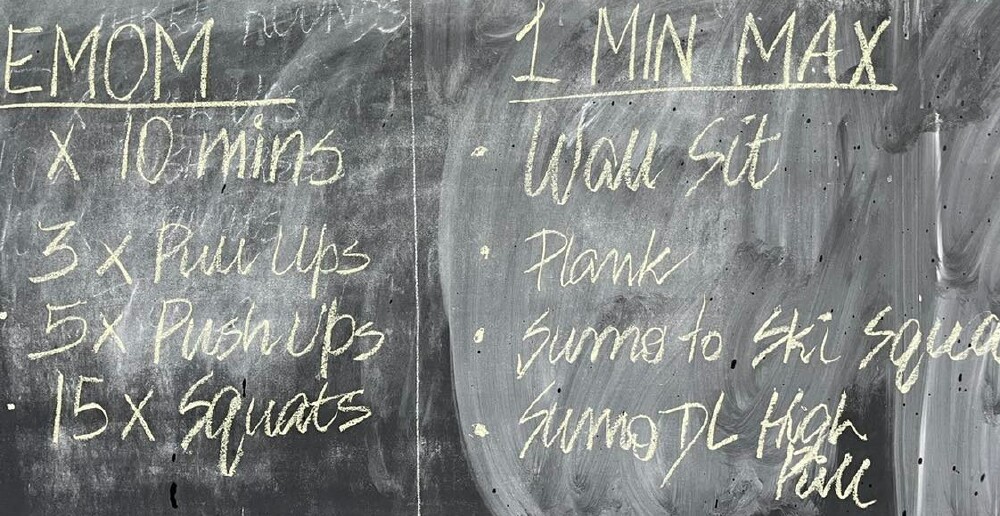 EMOM
x 10 mins
3 x Pull Ups
5 x Push Ups
15 x Squats
1 MIN MAX
• Wall Sit
• Plank
• Sumo to Ski Squa
• Sumo DL High
Pull